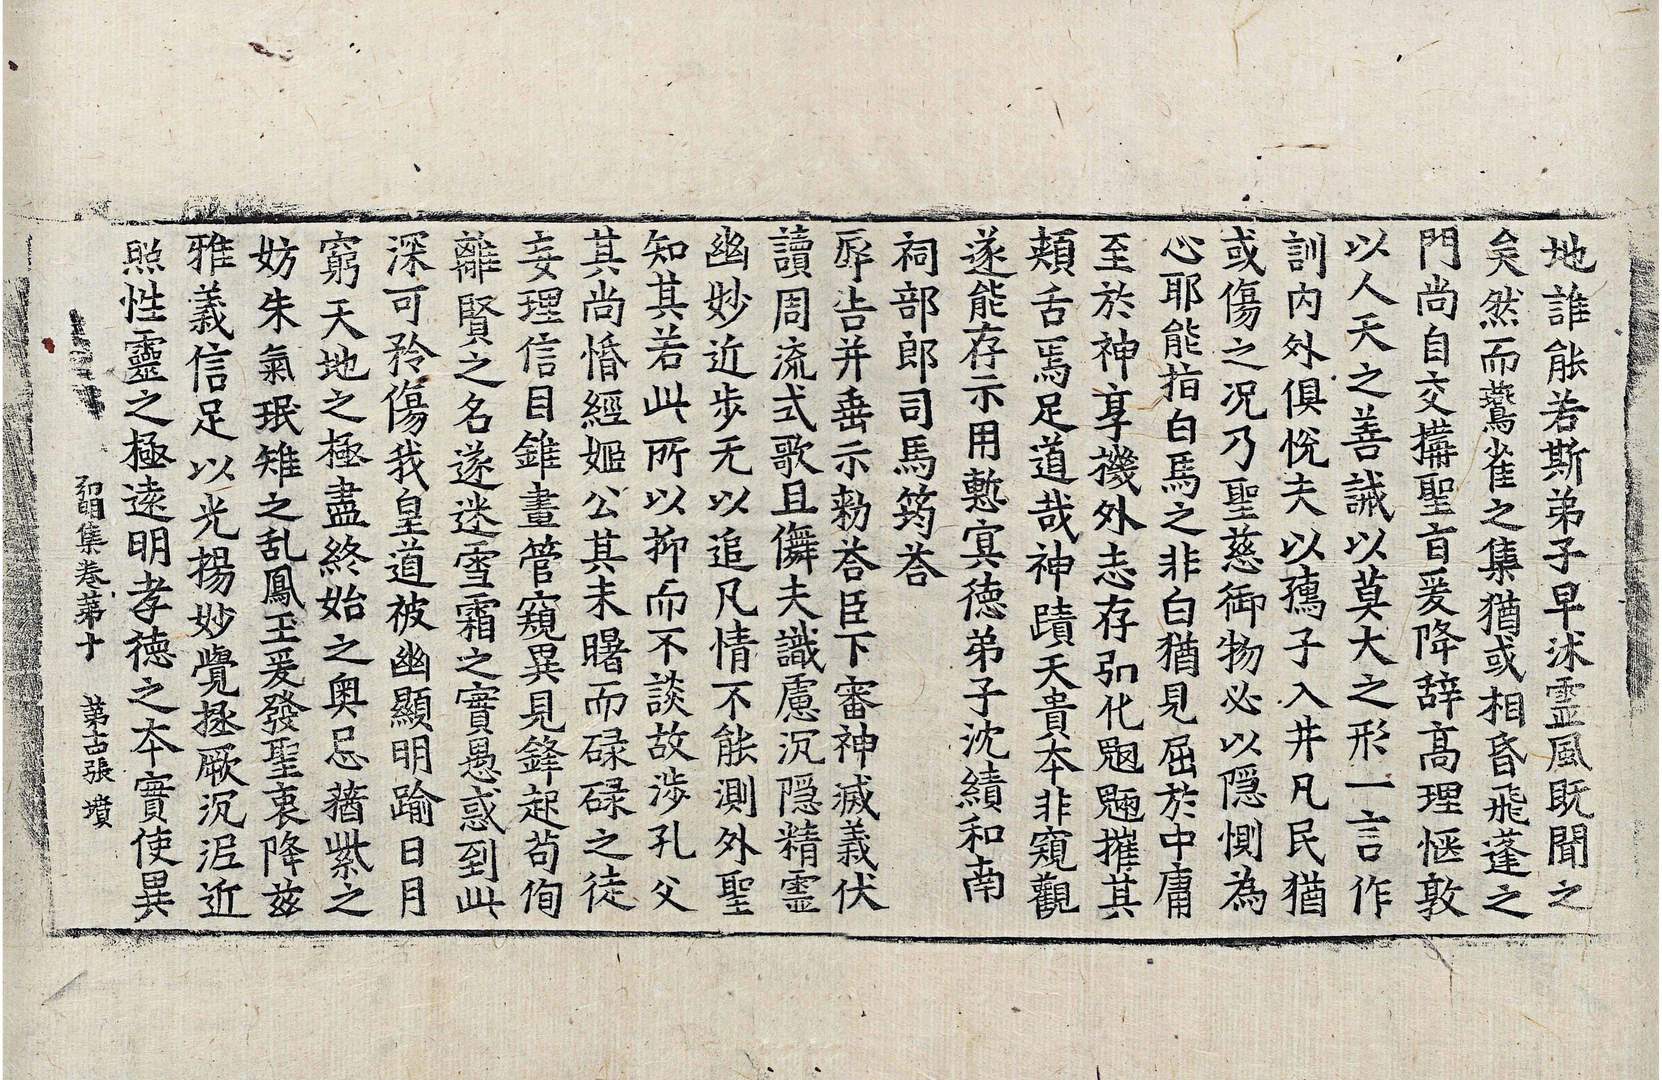 地誰能若斯弟子早沭霊風既聞之
矣然而鷰雀之集猶或相昏飛蓬之
門尚自交搆聖旨爰降辞髙理愜敦
以人天之善誡以莫大之形一言作
訓内外俱悅夫以孺子入井凡民猶
或傷之况乃聖慈御物必以隠惻為
心耶能指白馬之非白猶見屈於中庸
至於神享機外志存弘化魍魎摧其
頰舌焉足道哉神蹟天貴本非窺觀
遂能存示用慙寘德弟子沈績和南
祠部郎司馬筠荅
辱告并垂示勑荅臣下審神滅義伏
讀周流式歌且儛夫識慮沉隠精霊
幽妙近步无以追凡情不能測外聖
知其若此所以抑而不談故涉孔父
其尚惛經姬公其未曙而碌碌之徒
妄理信目錐畫管窺異見鋒起苟佝
離賢之名遂迷雪霜之實愚惑到此
深可矜傷我皇道被幽顯明踰日月
窮天地之極盡終始之奧忌蕕紫之
妨朱氣珉雉之乱鳳玉爰發聖衷降兹
雅義信足以光揚妙覺拯厥沉泥近
照性靈之極遠明孝德之本實使異
弘明集卷第十　第古張　墳